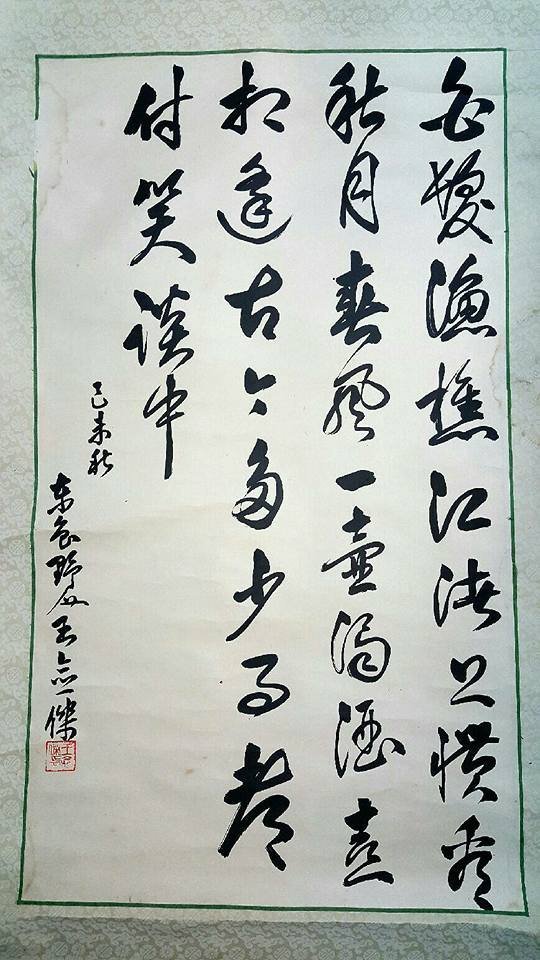 白髮漁樵江渚上慣看
秋月春風一壺濁酒喜
相逢古今多少事都
付笑談中
己未秋
东野人王傑